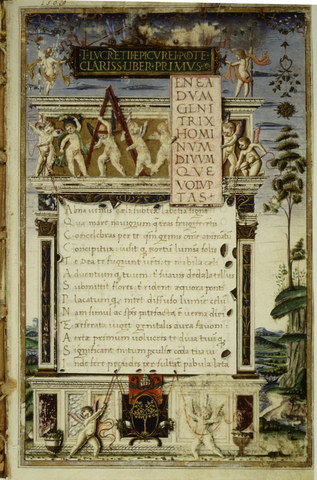 T. LVCRETII EPICVREI POETE
CLARISS. LIBER PRIMVS
A
ENEA
DVM
GENI
TRIX
HOMI
NVM
DIVVM
QVE
VOLVP
TAS
Alma Venus cæli subter labentia signa
Quæ mare navigerum quæ terras frugiferentis
Concelebras per te qm genus omne animantū
Concipitur visitq; exortū lumina solis
Te Dea te fugiunt venti te nubila cæli
Adventumq; tuum
Submittit flores tibi rident equora ponti
Placatumq; nitet diffuso lumine cælū
Nam simul ac species patefacta ē verna diei
Et reserata viget genitalis aura favoni
Aeriæ primum volucres te diva tuūq;
Significant initum perculse corda tua vi
Inde fere pecudes per sultāt pabula læta